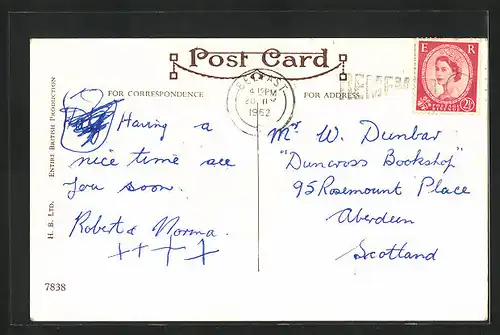 Post Card
FOR CORRESPONDENCE
FOR ADDRESS
BELFAST
6.15PM
1962
E R
2½
ENTIRE BRITISH PRODUCTION
H. B. LTD.
Having a
nice time see
you soon.
Robert & Norma.
++++
Mr W. Dunbar
"Duncross Bookshop"
95 Rosemount Place
Aberdeen
Scotland
7838